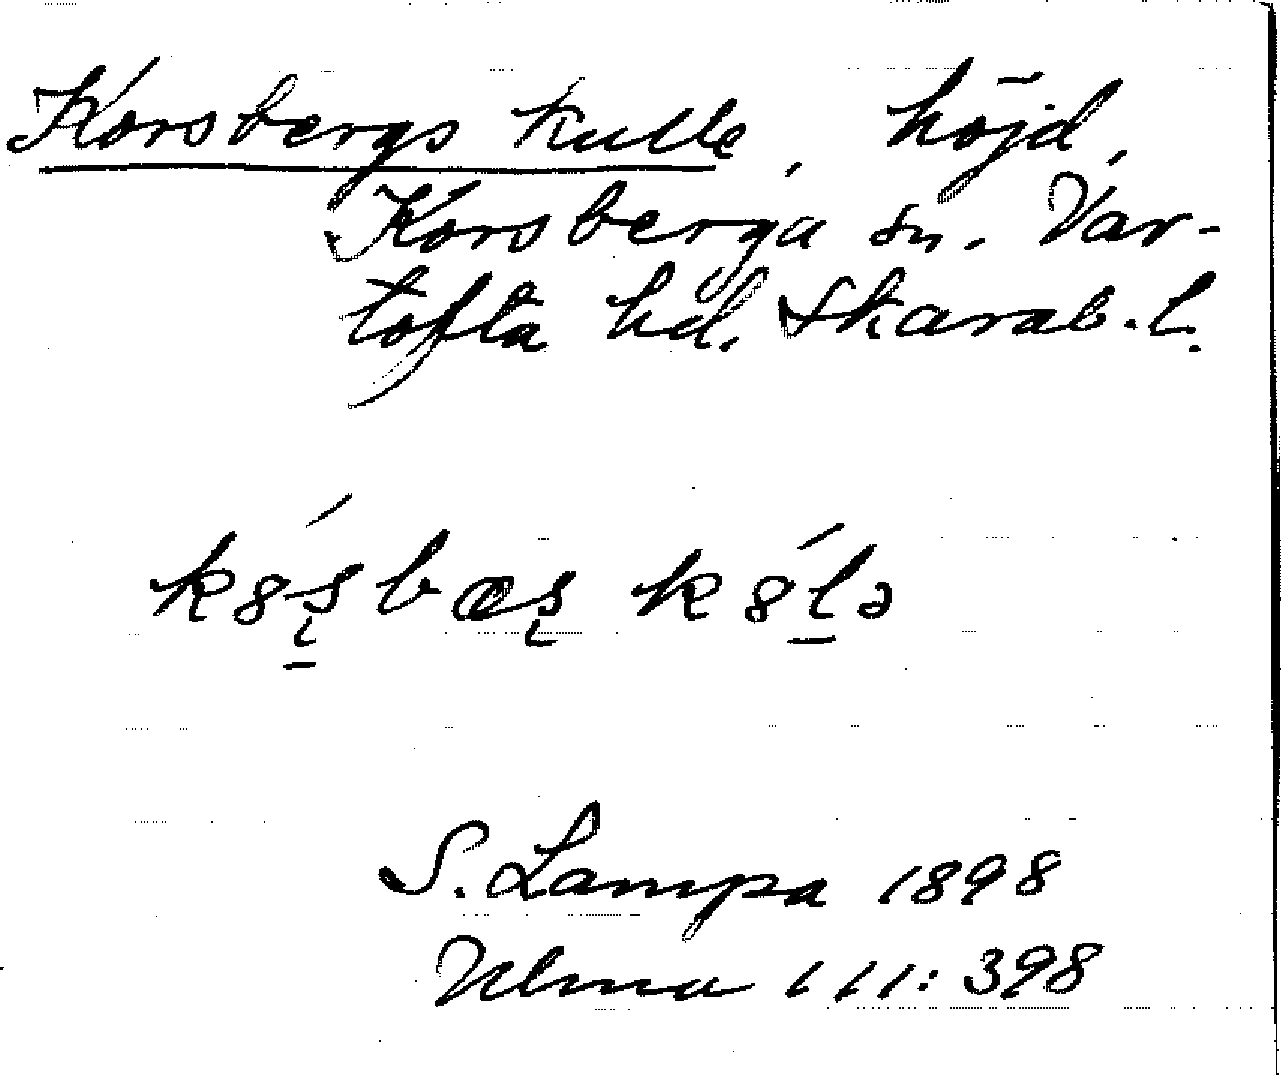 Korsbergs kulle, höjd,
Korsberga sn. Var-
tofta hd. Skarab. l.
S. Lampa 1898
Ulma 111:398